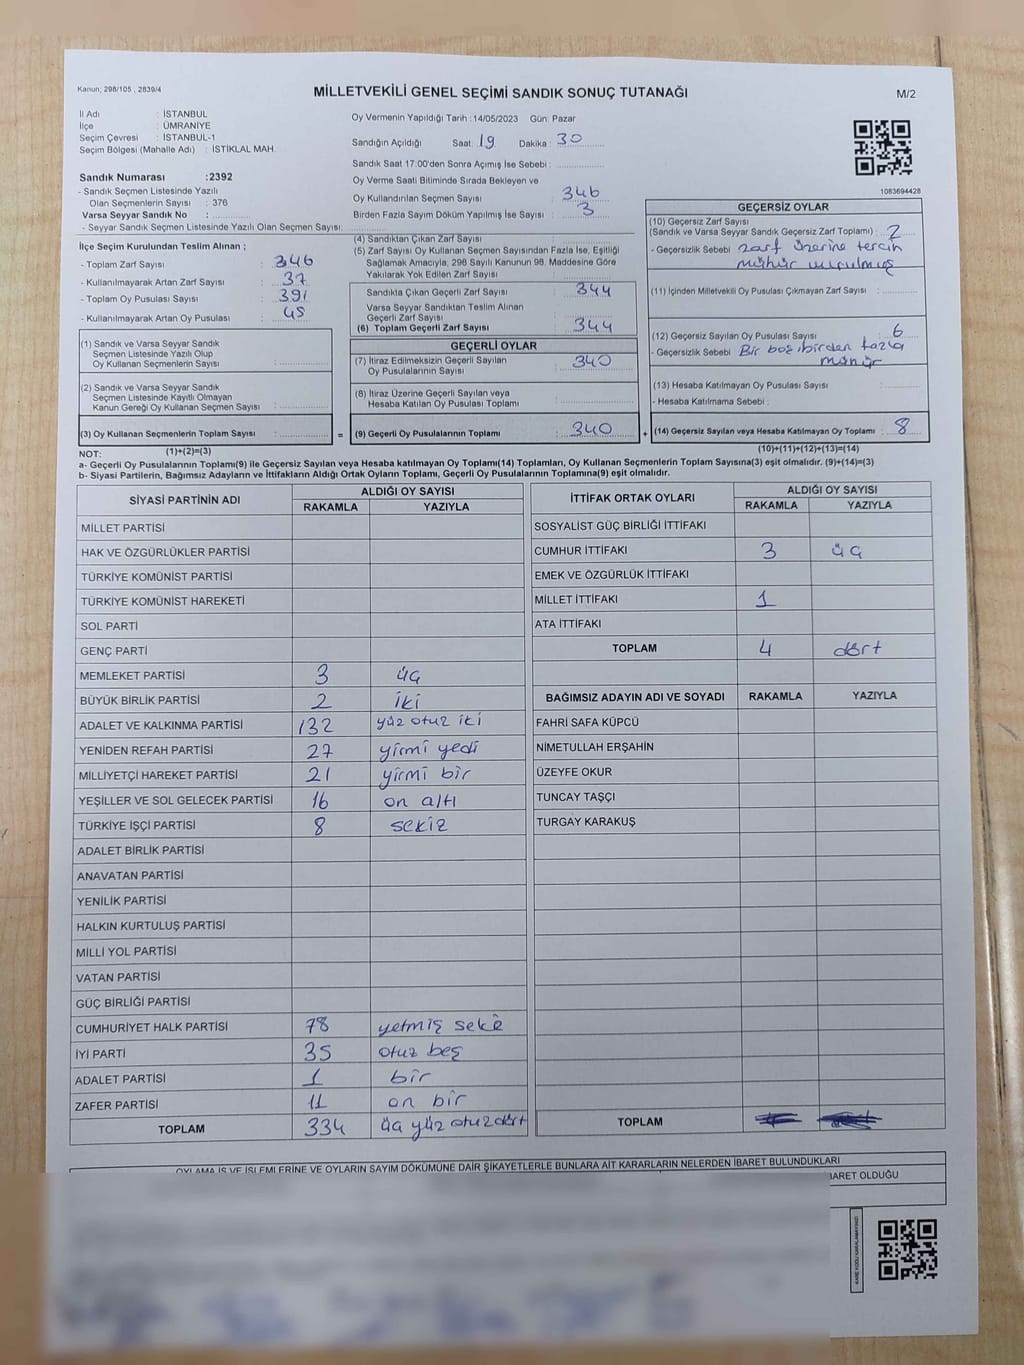 Kanun; 298/105 , 2839/4
MİLLETVEKİLİ GENEL SEÇİMİ SANDIK SONUÇ TUTANAĞI
M/2
İl Adı : İSTANBUL
İlçe : ÜMRANİYE
Seçim Çevresi : İSTANBUL-1
Seçim Bölgesi (Mahalle Adı) : İSTİKLAL MAH.
Sandık Numarası :2392
- Sandık Seçmen Listesinde Yazılı
Olan Seçmenlerin Sayısı : 376
Varsa Seyyar Sandık No :
- Seyyar Sandık Seçmen Listesinde Yazılı Olan Seçmen Sayısı:
Oy Vermenin Yapıldığı Tarih :14/05/2023 Gün: Pazar
Sandığın Açıldığı Saat: 19 Dakika: 30
Sandık Saat 17:00'den Sonra Açımış İse Sebebi :
Oy Verme Saati Bitiminde Sırada Bekleyen ve
Oy Kullandırılan Seçmen Sayısı : 346
Birden Fazla Sayım Döküm Yapılmış İse Sayısı : 3
1083694428
İlçe Seçim Kurulundan Teslim Alınan ;
- Toplam Zarf Sayısı : 346
- Kullanılmayarak Artan Zarf Sayısı : 37
- Toplam Oy Pusulası Sayısı : 391
- Kullanılmayarak Artan Oy Pusulası : 45
(1) Sandık ve Varsa Seyyar Sandık
Seçmen Listesinde Yazılı Olup
Oy Kullanan Seçmenlerin Sayısı :
(2) Sandık ve Varsa Seyyar Sandık
Seçmen Listesinde Kayıtlı Olmayan
Kanun Gereği Oy Kullanan Seçmen Sayısı :
(3) Oy Kullanan Seçmenlerin Toplam Sayısı :
(1)+(2)=(3)
(4) Sandıktan Çıkan Zarf Sayısı :
(5) Zarf Sayısı Oy Kullanan Seçmen Sayısından Fazla İse, Eşitliği
Sağlamak Amacıyla, 298 Sayılı Kanunun 98. Maddesine Göre
Yakılarak Yok Edilen Zarf Sayısı :
Sandıkta Çıkan Geçerli Zarf Sayısı : 344
Varsa Seyyar Sandıktan Teslim Alınan
Geçerli Zarf Sayısı :
(6) Toplam Geçerli Zarf Sayısı : 344
GEÇERLİ OYLAR
(7) İtiraz Edilmeksizin Geçerli Sayılan
Oy Pusulalarının Sayısı : 340
(8) İtiraz Üzerine Geçerli Sayılan veya
Hesaba Katılan Oy Pusulası Toplamı :
= (9) Geçerli Oy Pusulalarının Toplamı : 340
GEÇERSİZ OYLAR
(10) Geçersiz Zarf Sayısı
(Sandık ve Varsa Seyyar Sandık Geçersiz Zarf Toplamı) : 2
- Geçersizlik Sebebi zarf üzerine tercih
mühür vurulmuş
(11) İçinden Milletvekili Oy Pusulası Çıkmayan Zarf Sayısı :
(12) Geçersiz Sayılan Oy Pusulası Sayısı : 6
- Geçersizlik Sebebi Bir boş, birden fazla
mühür
(13) Hesaba Katılmayan Oy Pusulası Sayısı :
- Hesaba Katılmama Sebebi :
+ (14) Geçersiz Sayılan veya Hesaba Katılmayan Oy Toplamı : 8
(10)+(11)+(12)+(13)=(14)
NOT:
a- Geçerli Oy Pusulalarının Toplamı(9) ile Geçersiz Sayılan veya Hesaba katılmayan Oy Toplamı(14) Toplamları, Oy Kullanan Seçmenlerin Toplam Sayısına(3) eşit olmalıdır. (9)+(14)=(3)
b- Siyasi Partilerin, Bağımsız Adayların ve İttifakların Aldığı Ortak Oyların Toplamı, Geçerli Oy Pusulalarının Toplamına(9) eşit olmalıdır.
SİYASİ PARTİNİN ADI ALDIĞI OY SAYISI
RAKAMLA YAZIYLA
MİLLET PARTİSİ
HAK VE ÖZGÜRLÜKLER PARTİSİ
TÜRKİYE KOMÜNİST PARTİSİ
TÜRKİYE KOMÜNİST HAREKETİ
SOL PARTİ
GENÇ PARTİ
MEMLEKET PARTİSİ 3 üç
BÜYÜK BİRLİK PARTİSİ 2 iki
ADALET VE KALKINMA PARTİSİ 132 yüz otuz iki
YENİDEN REFAH PARTİSİ 27 yirmi yedi
MİLLİYETÇİ HAREKET PARTİSİ 21 yirmi bir
YEŞİLLER VE SOL GELECEK PARTİSİ 16 on altı
TÜRKİYE İŞÇİ PARTİSİ 8 sekiz
ADALET BİRLİK PARTİSİ
ANAVATAN PARTİSİ
YENİLİK PARTİSİ
HALKIN KURTULUŞ PARTİSİ
MİLLİ YOL PARTİSİ
VATAN PARTİSİ
GÜÇ BİRLİĞİ PARTİSİ
CUMHURİYET HALK PARTİSİ 78 yetmiş
İYİ PARTİ 35 otuz beş
ADALET PARTİSİ 1 bir
ZAFER PARTİSİ 11 on bir
TOPLAM 334 üç yüz otuz dört
İTTİFAK ORTAK OYLARI ALDIĞI OY SAYISI
RAKAMLA YAZIYLA
SOSYALİST GÜÇ BİRLİĞİ İTTİFAKI
CUMHUR İTTİFAKI 3 üç
EMEK VE ÖZGÜRLÜK İTTİFAKI
MİLLET İTTİFAKI 1
ATA İTTİFAKI
TOPLAM 4 dört
BAĞIMSIZ ADAYIN ADI VE SOYADI RAKAMLA YAZIYLA
FAHRİ SAFA KÜPCÜ
NİMETULLAH ERŞAHİN
ÜZEYFE OKUR
TUNCAY TAŞÇI
TURGAY KARAKUŞ
TOPLAM
OYLAMA İŞ VE İŞLEMLERİNE VE OYLARIN SAYIM DÖKÜMÜNE DAİR ŞİKAYETLERLE BUNLARA AİT KARARLARIN NELERDEN İBARET BULUNDUKLARI
İBARET OLDUĞU